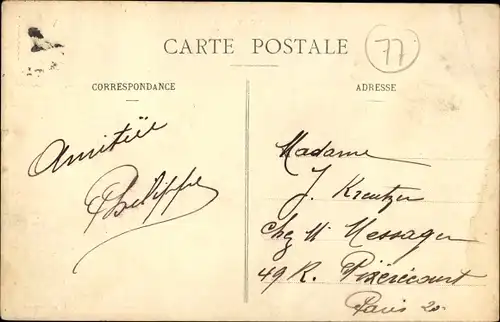 CARTE POSTALE
77
CORRESPONDANCE
ADRESSE
Amitiés
Philippe
Madame
J. Kreutzer
Chez Mr Messager
49 R. Pixérécourt
Paris 20